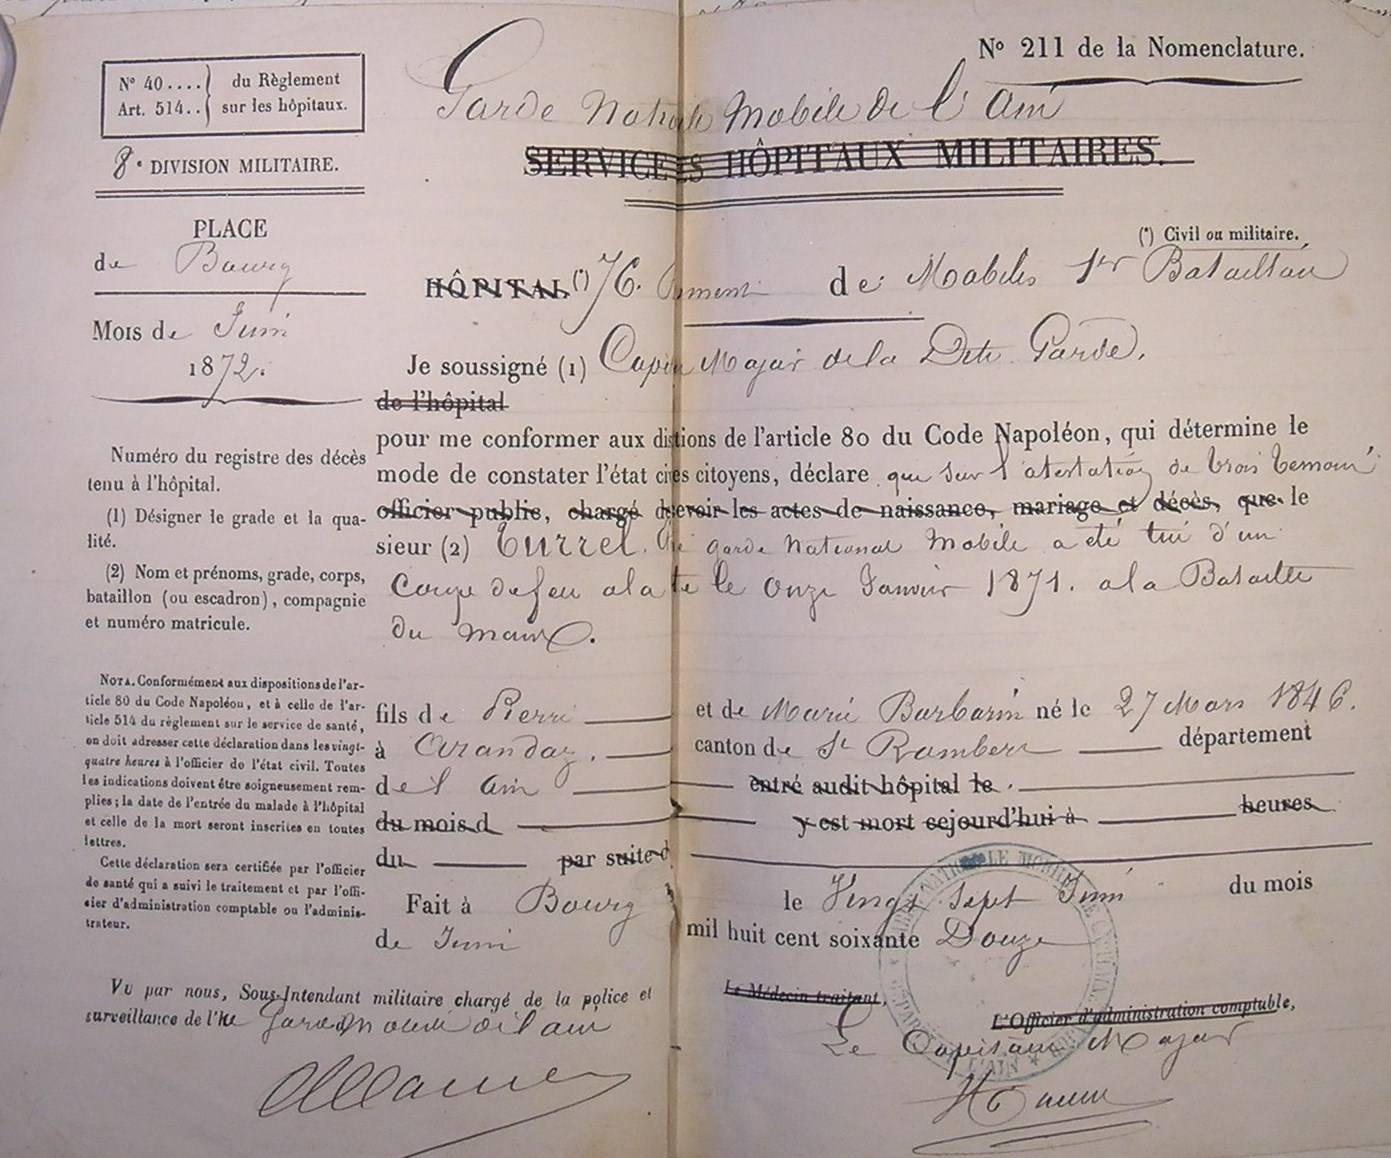 N° 211 de la Nomenclature.
N° 40.... du Règlement
Art. 514.. sur les hôpitaux.
8e DIVISION MILITAIRE.
PLACE
de Bourg
Mois de Juin
1872.
Numéro du registre des décès
tenu à l'hôpital.
(1) Désigner le grade et la qua-
lité.
(2) Nom et prénoms, grade, corps,
bataillon (ou escadron), compagnie
et numéro matricule.
NOTA. Conformément aux dispositions de l'ar-
ticle 80 du Code Napoléon, et à celle de l'ar-
ticle 514 du règlement sur le service de santé,
on doit adresser cette déclaration dans les vingt-
quatre heures à l'officier de l'état civil. Toutes
les indications doivent être soigneusement rem-
plies; la date de l'entrée du malade à l'hôpital
et celle de la mort seront inscrites en toutes
lettres.
Cette déclaration sera certifiée par l'officier
de santé qui a suivi le traitement et par l'offi-
cier d'administration comptable ou l'adminis-
trateur.
Garde Nationale Mobile de l'Ain
SERVICE ES HÔPITAUX MILITAIRES.
(*) Civil ou militaire.
HÔPITAL (*) 76. de Mobiles 1er Bataillon
Je soussigné (1) Major de la Dte Garde.
de l'hôpital
pour me conformer aux dis tions de l'article 80 du Code Napoléon, qui détermine le
mode de constater l'état ci es citoyens, déclare que sur l'atestation de trois temoins
officier public, chargé d evoir les actes de naissance, mariage et décès, que le
sieur (2) Turrel. garde National Mobile a été tué d'un
Coup de feu a la te le onze Janvier 1871. a la Bataille
du mans.
fils de Pierre et de Marie Barbarin né le 27 Mars 1846.
à Arandaz. canton de St Rambert département
de l'Ain entré audit hôpital le
du mois d y est mort cejourd'hui à heures
du par suite d
Fait à Bourg le Vingt Sept Juin du mois
de Juin mil huit cent soixante Douze
Vu par nous, Sous-Intendant militaire chargé de la police et
surveillance de l'h Garde Mobile de l'ain
Le Médecin traitant,
L'Officier d'administration comptable,
Le Capitaine Major